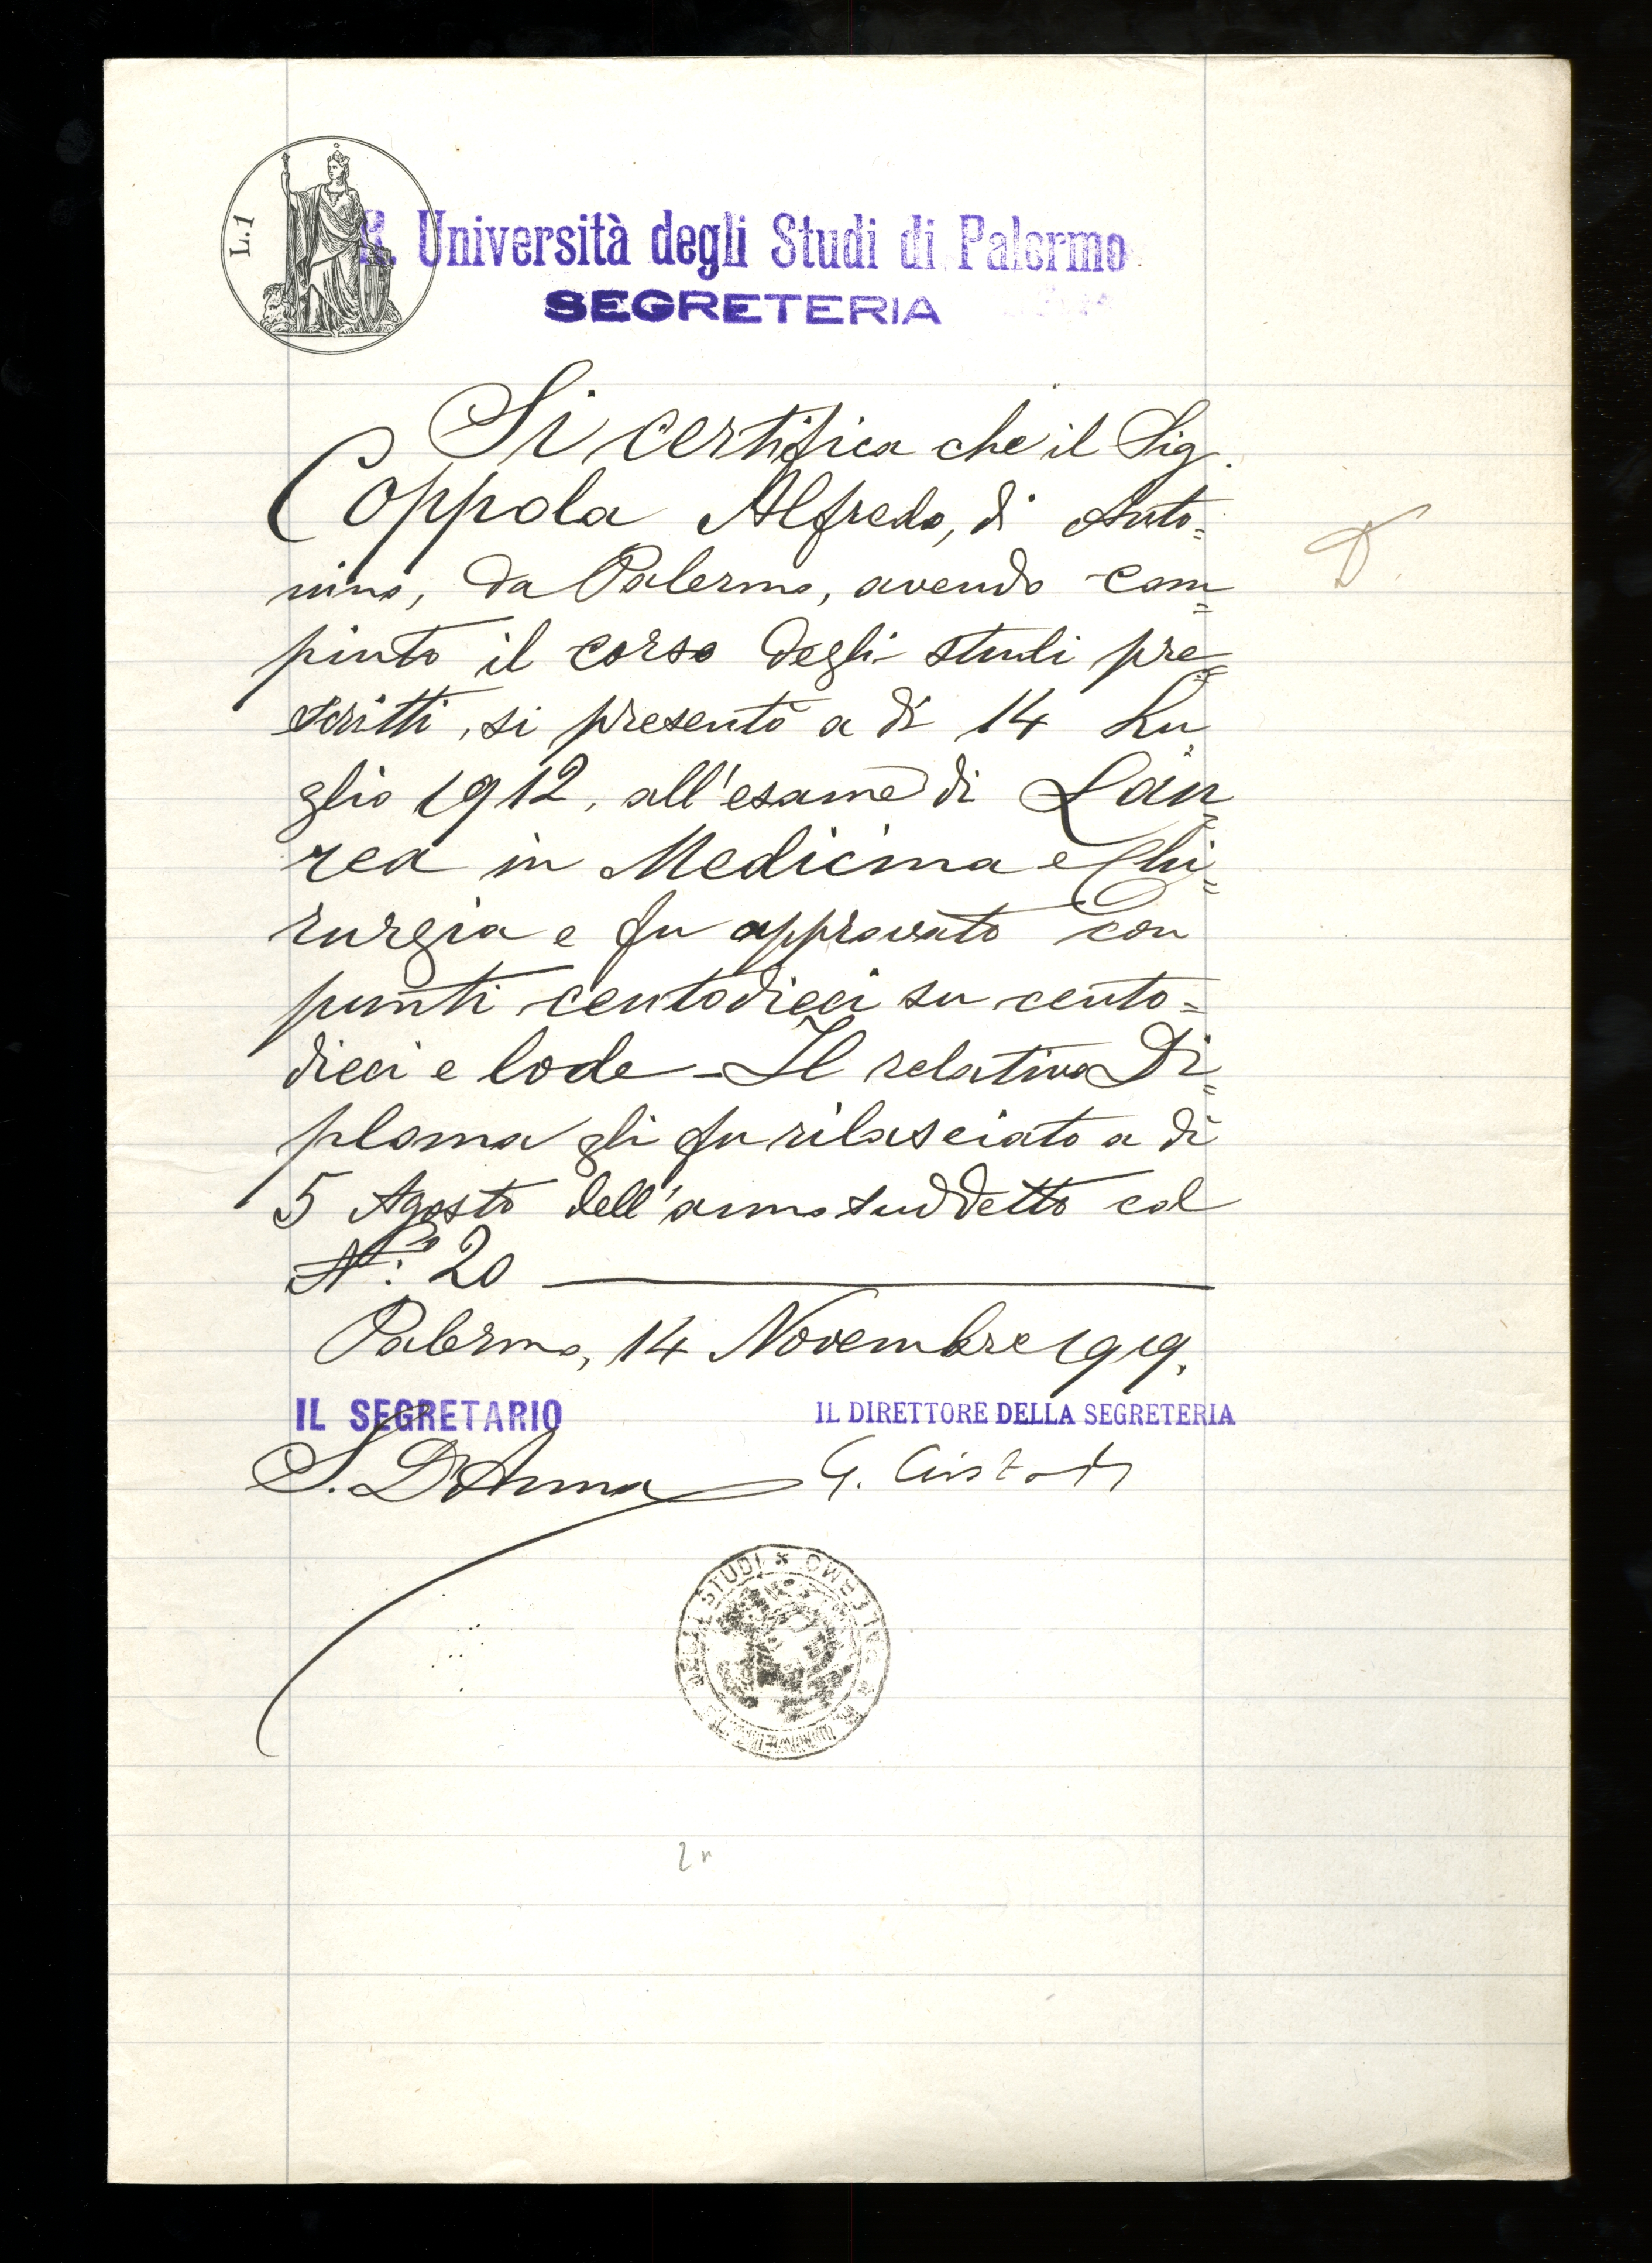 L.1
R. Università degli Studi di Palermo
SEGRETERIA
Si certifica che il Sig.
Coppola Alfredo, di Anto=
nino, da Palermo, avendo com=
piuto il corso degli studi pre=
scritti, si presentò a dì 14 Lu=
glio 1912, all'esame di Lau=
rea in Medicina e Chi=
rurgia e fu approvato con
punti centodieci su cento=
dieci e lode - Il relativo Di=
ploma gli fu rilasciato a dì
5 Agosto dell'anno suddetto col
N.º 20
Palermo, 14 Novembre 1919.
IL SEGRETARIO IL DIRETTORE DELLA SEGRETERIA
S. D'Anna G.
R. UNIVERSITÀ DEGLI STUDI * PALERMO *